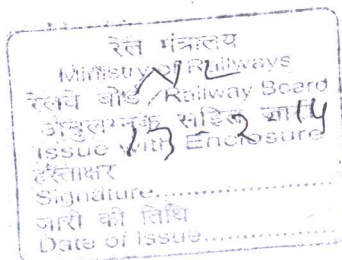 रेल मंत्रालय
Ministry of Railways
NL
रेलवे बोर्ड/Railway Board
अनुलग्नक सहित जारी
13 2 14
Issue with Enclosure
हस्ताक्षर
Signature................
जारी की तिथि
Date of Issue................